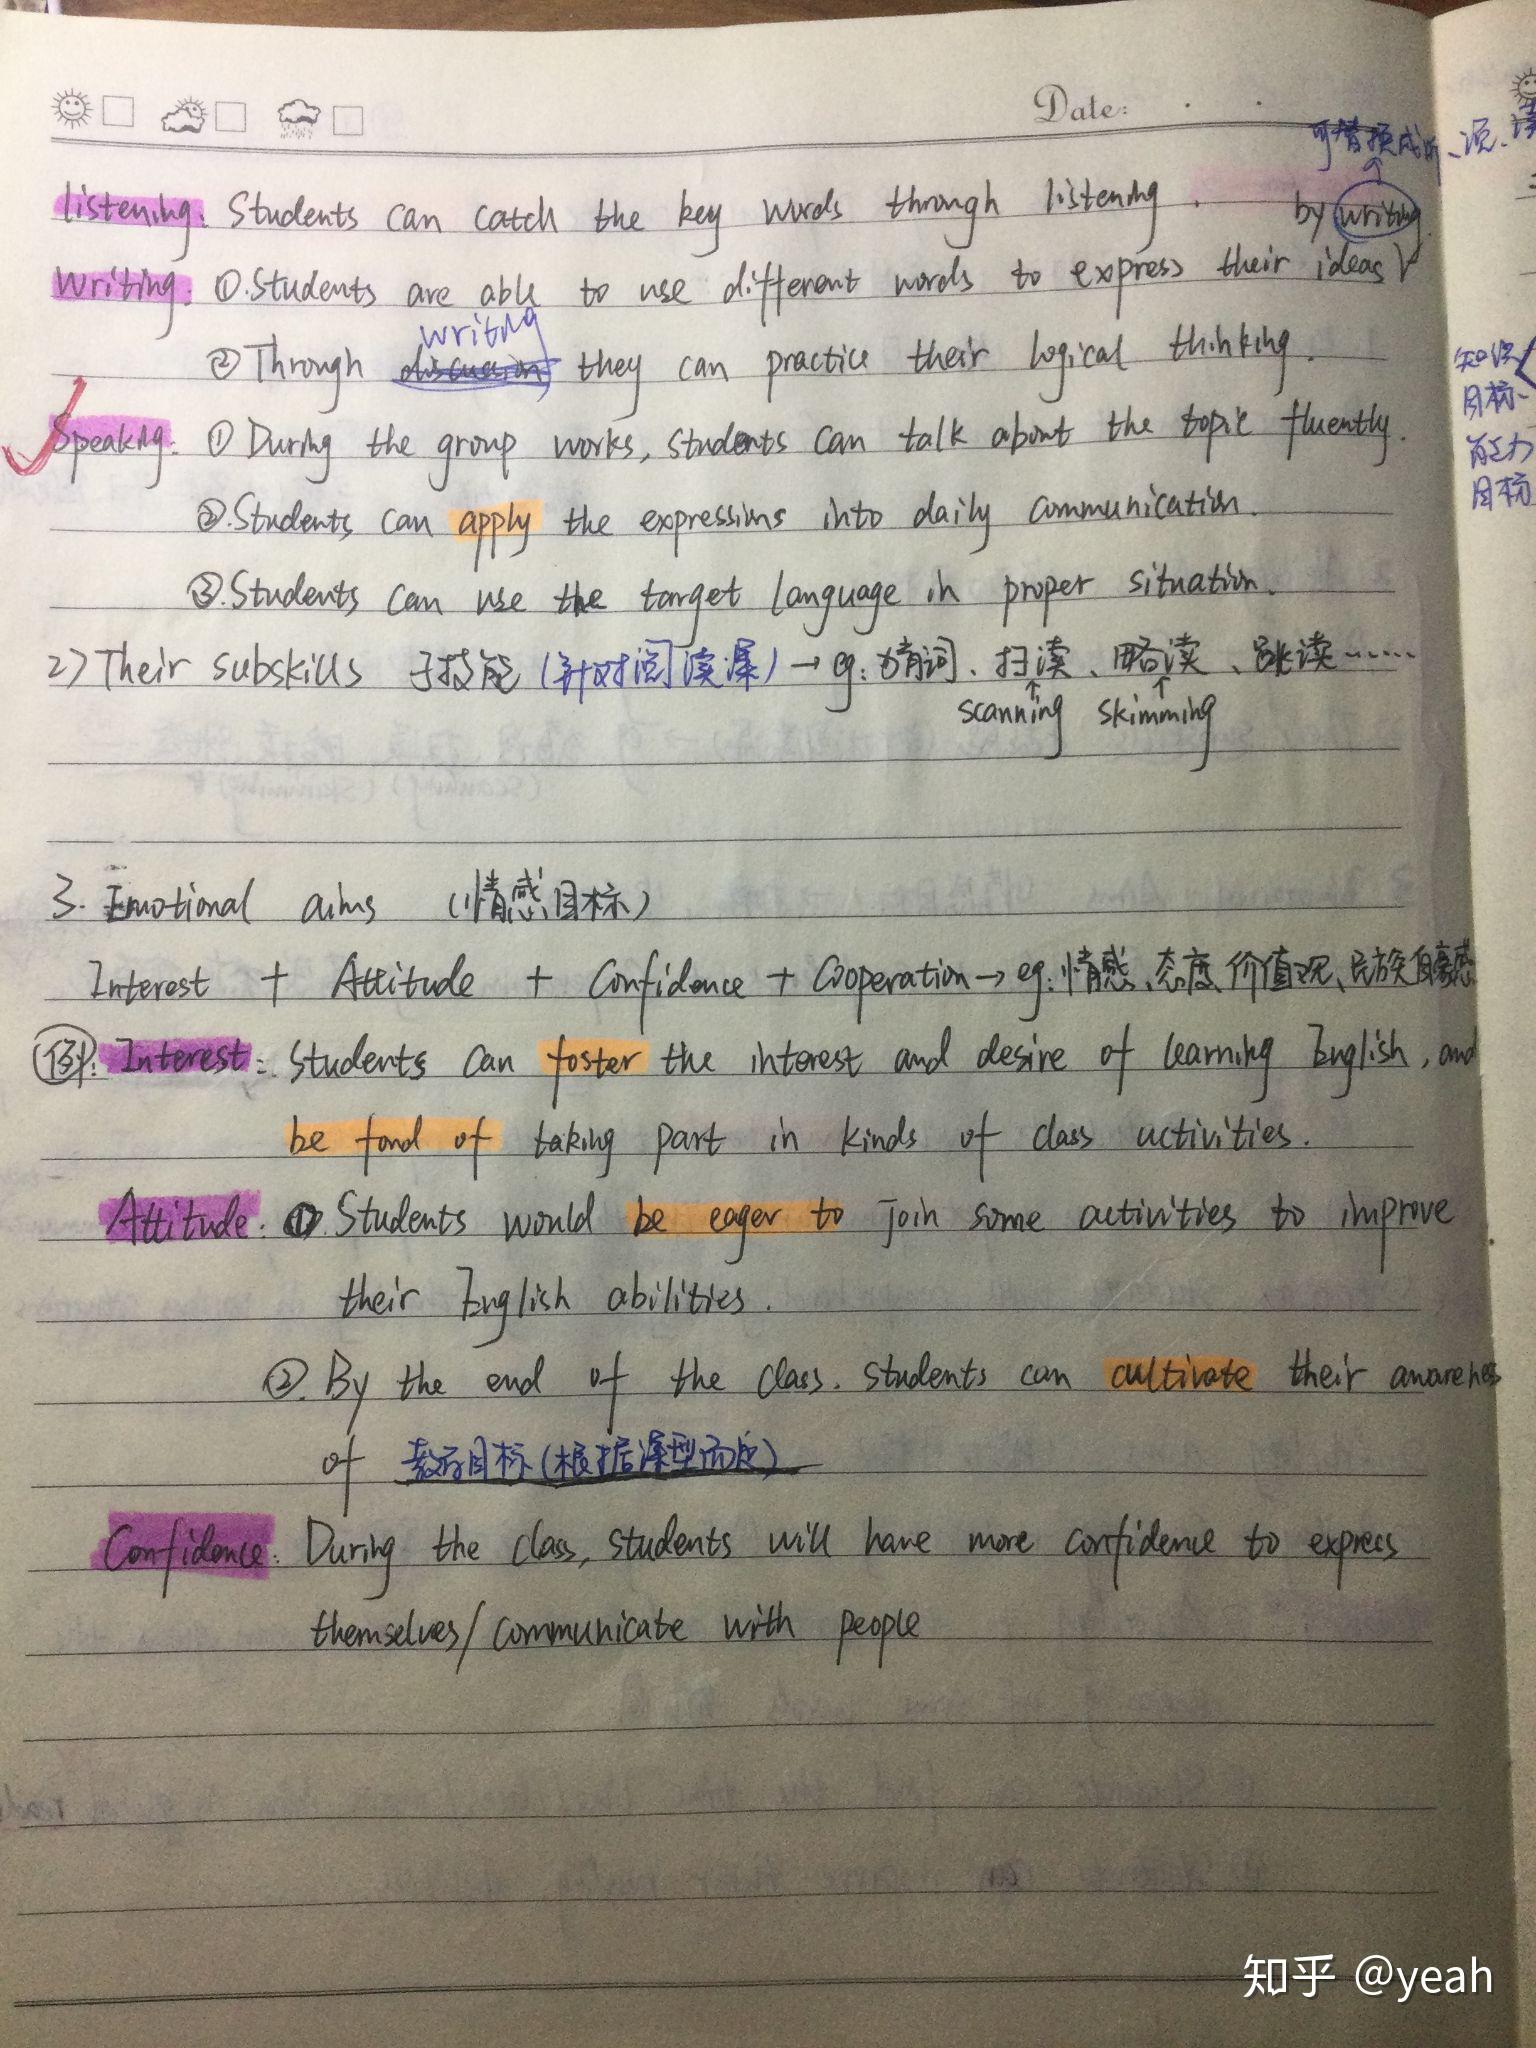 Date:
可替换成听、说、读
listening: Students can catch the key words through listening. by writing.
Writing: ①.Students are able to use different words to express their ideas
writing
②Through discussion they can practice their logical thinking.
Speaking: ①During the group works, students can talk about the topic fluently.
②.Students can apply the expressions into daily communication.
③.Students can use the target language in proper situation.
2)Their subskills 子技能(针对阅读课)→eg:猜词、扫读、略读、跳读……
scanning skimming
3. Emotional aims (情感目标)
Interest + Attitude + Confidence + Cooperation→eg:情感、态度、价值观、民族自豪感
例: Interest: Students can foster the interest and desire of learning English, and
be fond of taking part in kinds of class activities.
Attitude: ①.Students would be eager to join some activities to improve
their English abilities.
②.By the end of the class. students can cultivate their awareness
of 教育目标(根据课型而定)
Confidence: During the class, students will have more confidence to express
themselves/communicate with people
知识
目标
能力
目标
知乎 @yeah